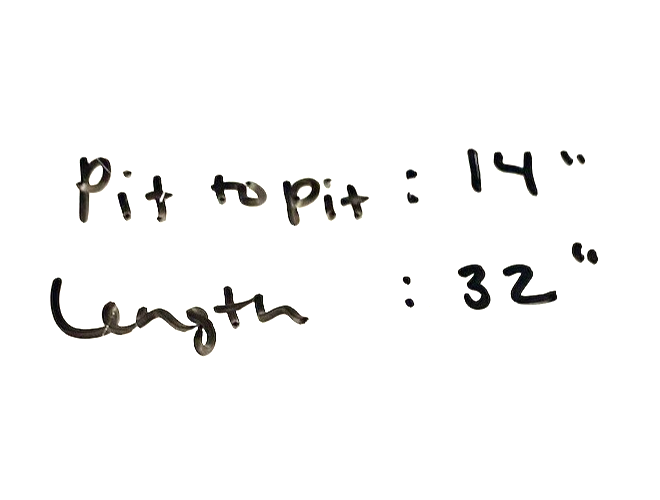 Pit to pit : 14"
Length : 32"